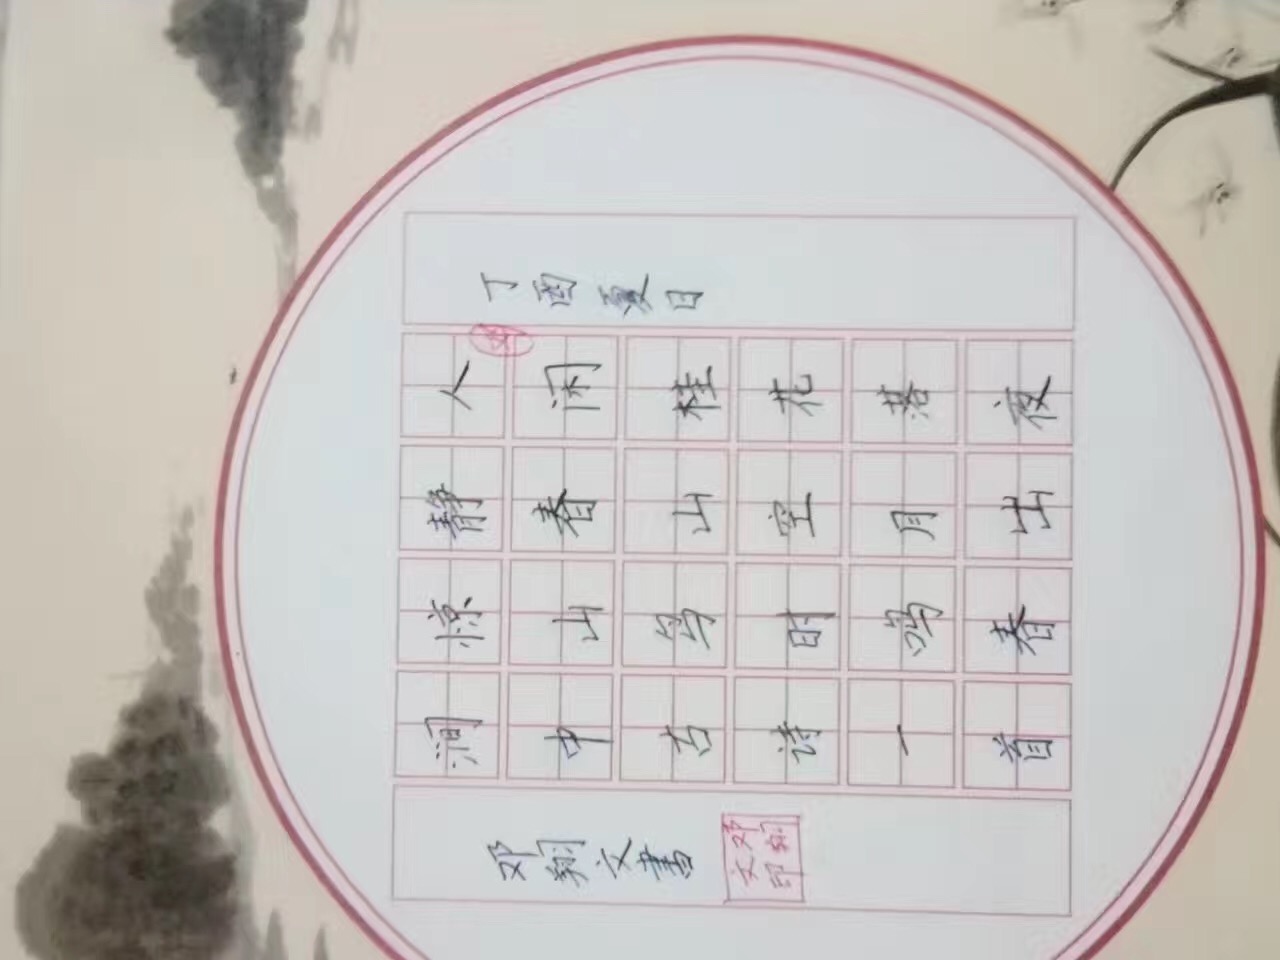 丁酉夏日
人闲桂花落夜
静春山空月出
惊山鸟时鸣春
涧中古诗一首
邓翔文书